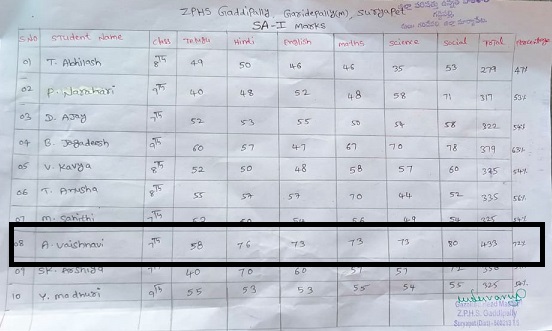 ZPHS Gaddipally, Garidepally(m), Suryapet
SA-I Marks
S.No Student Name Class Telugu Hindi English maths Science Social Total Percentage
01 T. Abhilash 8th 49 50 46 46 35 53 279 47%
02 P. Narahari 9th 40 48 52 48 58 71 317 53%
03 D. Ajay 7th 52 53 55 50 54 58 322 54%
04 B. Jagadeesh 9th 60 57 47 67 70 78 379 63%
05 V. Kavya 8th 52 50 48 58 57 60 54%
06 T. Anusha 8th 55 57 57 70 44 52 335 56%
07 M. 7th 49 54 325
08 A. Vaishnavi 7th 58 76 73 73 73 80 433 72%
09 SK. 40 70 60 57 57
10 Y. Madhuri 9th 55 53 53 55 54 55 325
Gazetted Head Master
Z.P.H.S. Gaddipally